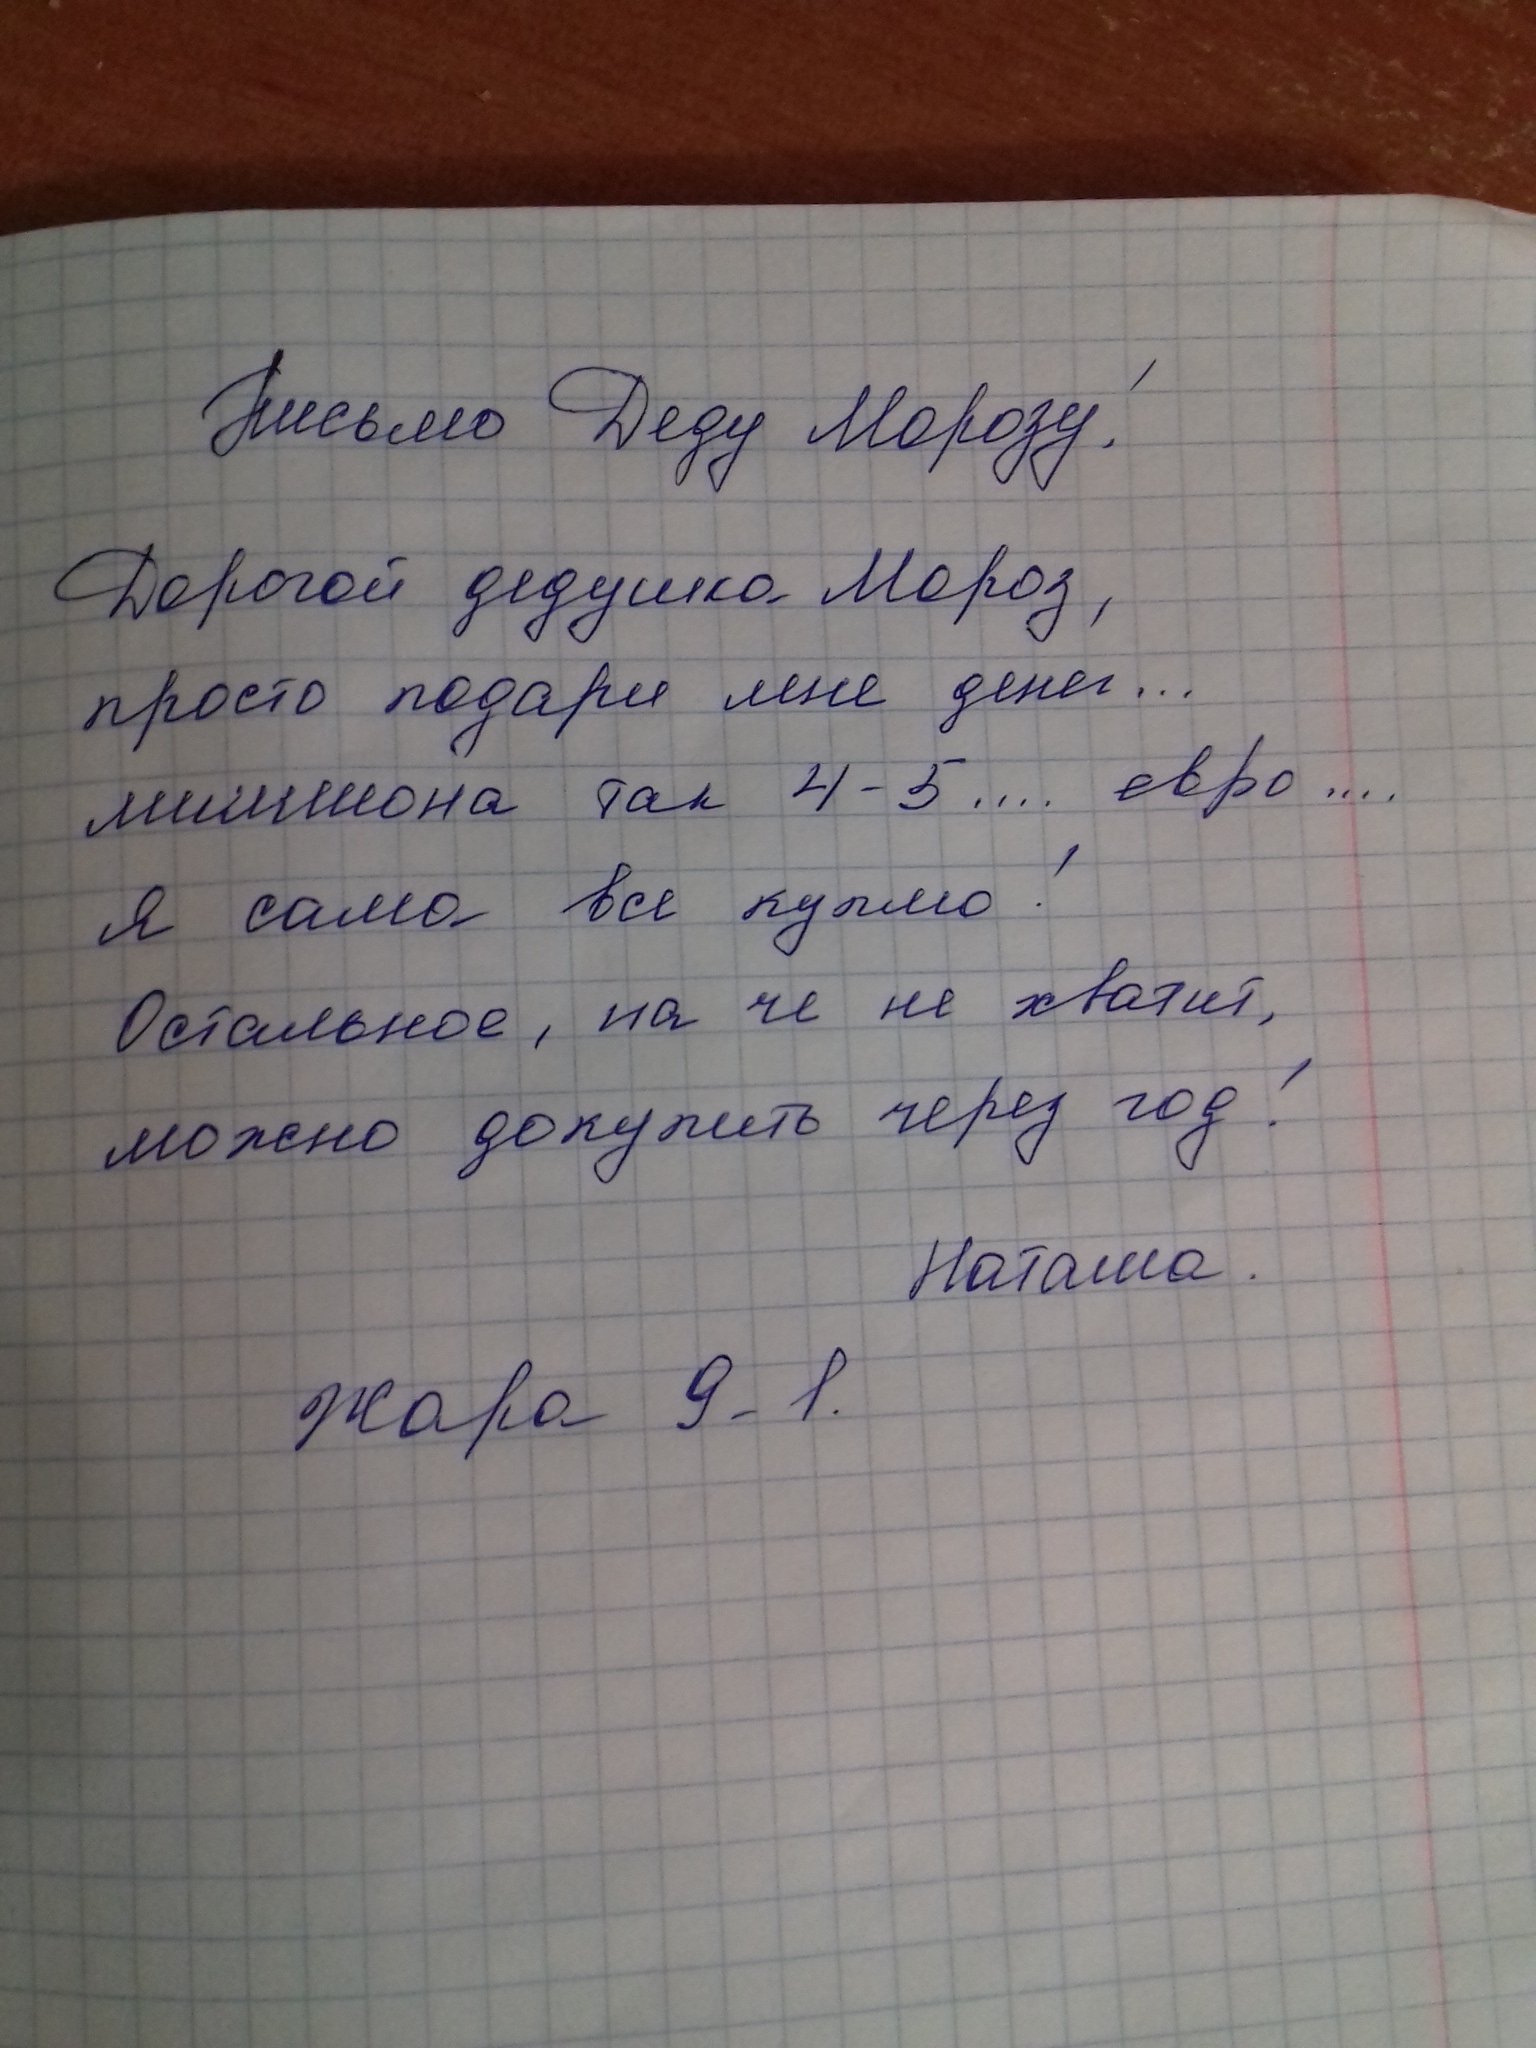 Письмо Деду Морозу!
Дорогой дедушка Мороз,
просто подари мне денег...
миллиона так 4-5.... евро....
Я сама все куплю!
Остальное, на че не хватит,
можно докупить через год!
Наташа.
Жара 9-1.